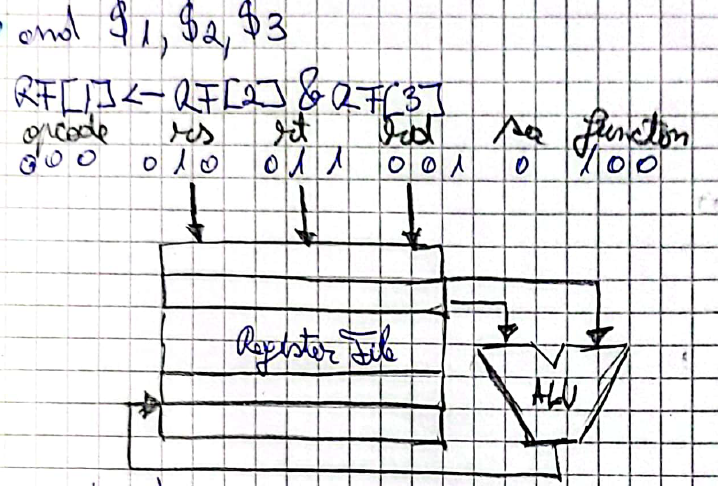 and $1, $2, $3
RF[1] <- RF[2] & RF[3]
opcode rs rt rd sa function
000 010 011 001 0 100
Register File
ALU